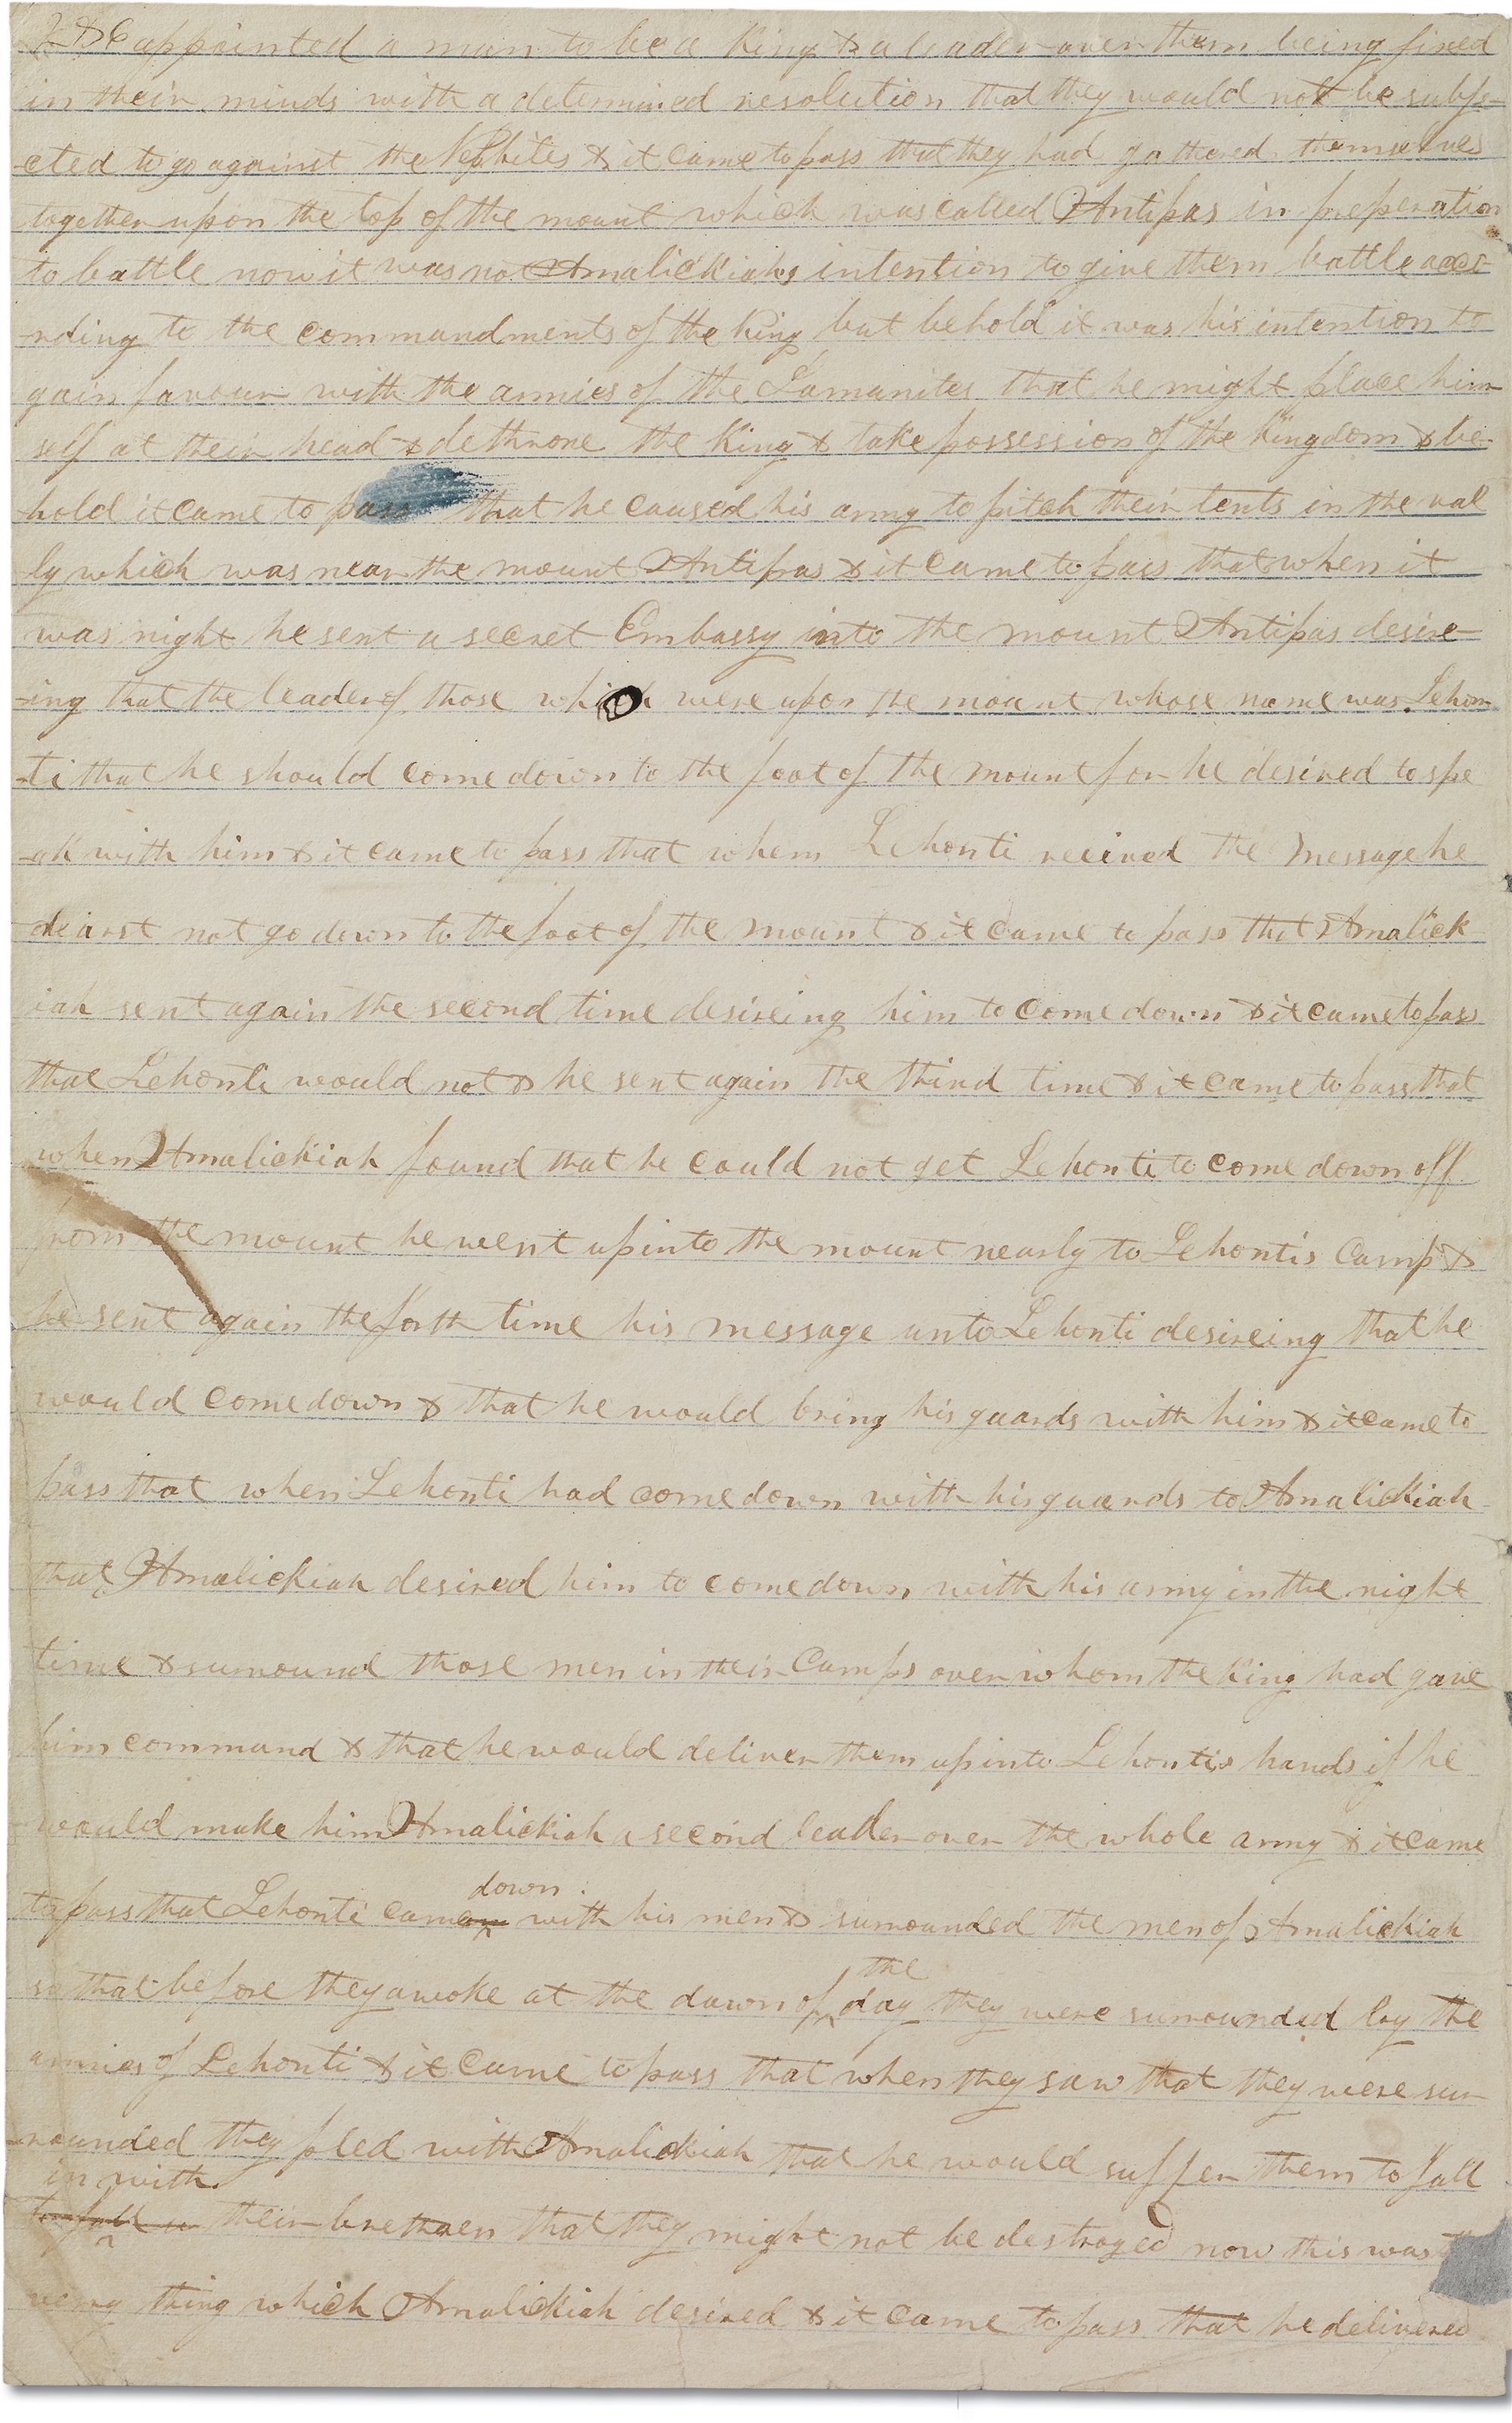 & appointed a man to be a King & a leader over them being fixed
in their minds with a determined resolution that they would not be subje-
-cted to go against the Nephites & it came to pass that they had gathered themselves
together upon the top of the mount which was called Antipas in preperation
to battle now it was not Amalickiahs intention to give them battle acco-
-rding to the commandments of the King but behold it was his intention to
gain favour with the armies of the Lamanites that he might place him
self at their head & dethrone the King & take possession of the Kingdom & be-
-hold it came to pass that he caused his army to pitch their tents in the val
-ly which was near the mount Antipas & it came to pass that when it
was night he sent a secret Embassy into the mount Antipas desire-
-ing that the leader of those which were upon the mount whose name was Lehon-
-ti that he should come down to the foot of the mount for he desired to spe
-ak with him & it came to pass that when Lehonti recived the message he
dearst not go down to the foot of the mount & it came to pass that Amalick
iah sent again the second time desireing him to come down & it came to pass
that Lehonti would not & he sent again the third time & it came to pass that
when Amalickiah found that he could not get Lehonti to come down off
from the mount he went up into the mount nearly to Lehontis Camp &
he sent again the forth time his message unto Lehonti desireing that he
would come down & that he would bring his guards with him & it came to
pass that when Lehonti had come down with his guards to Amalickiah
that Amalickiah desired him to come down with his army in the night
time & surround those men in their Camps over whom the King had gave
him command & that he would deliver them up into Lehontis hands if he
would make him Amalickiah a second leader over the whole army & it came
down
to pass that Lehonti came with his men & surrounded the men of Amalickiah
the
so that before they awoke at the dawn of day they were surrounded by the
armies of Lehonti & it came to pass that when they saw that they were sur
-rounded they pled with Amalickiah that he would suffer them to fall
in with
to fall in their brethren that they might not be destroyed now this was
very thing which Amalickiah desired & it came to pass that he delivered